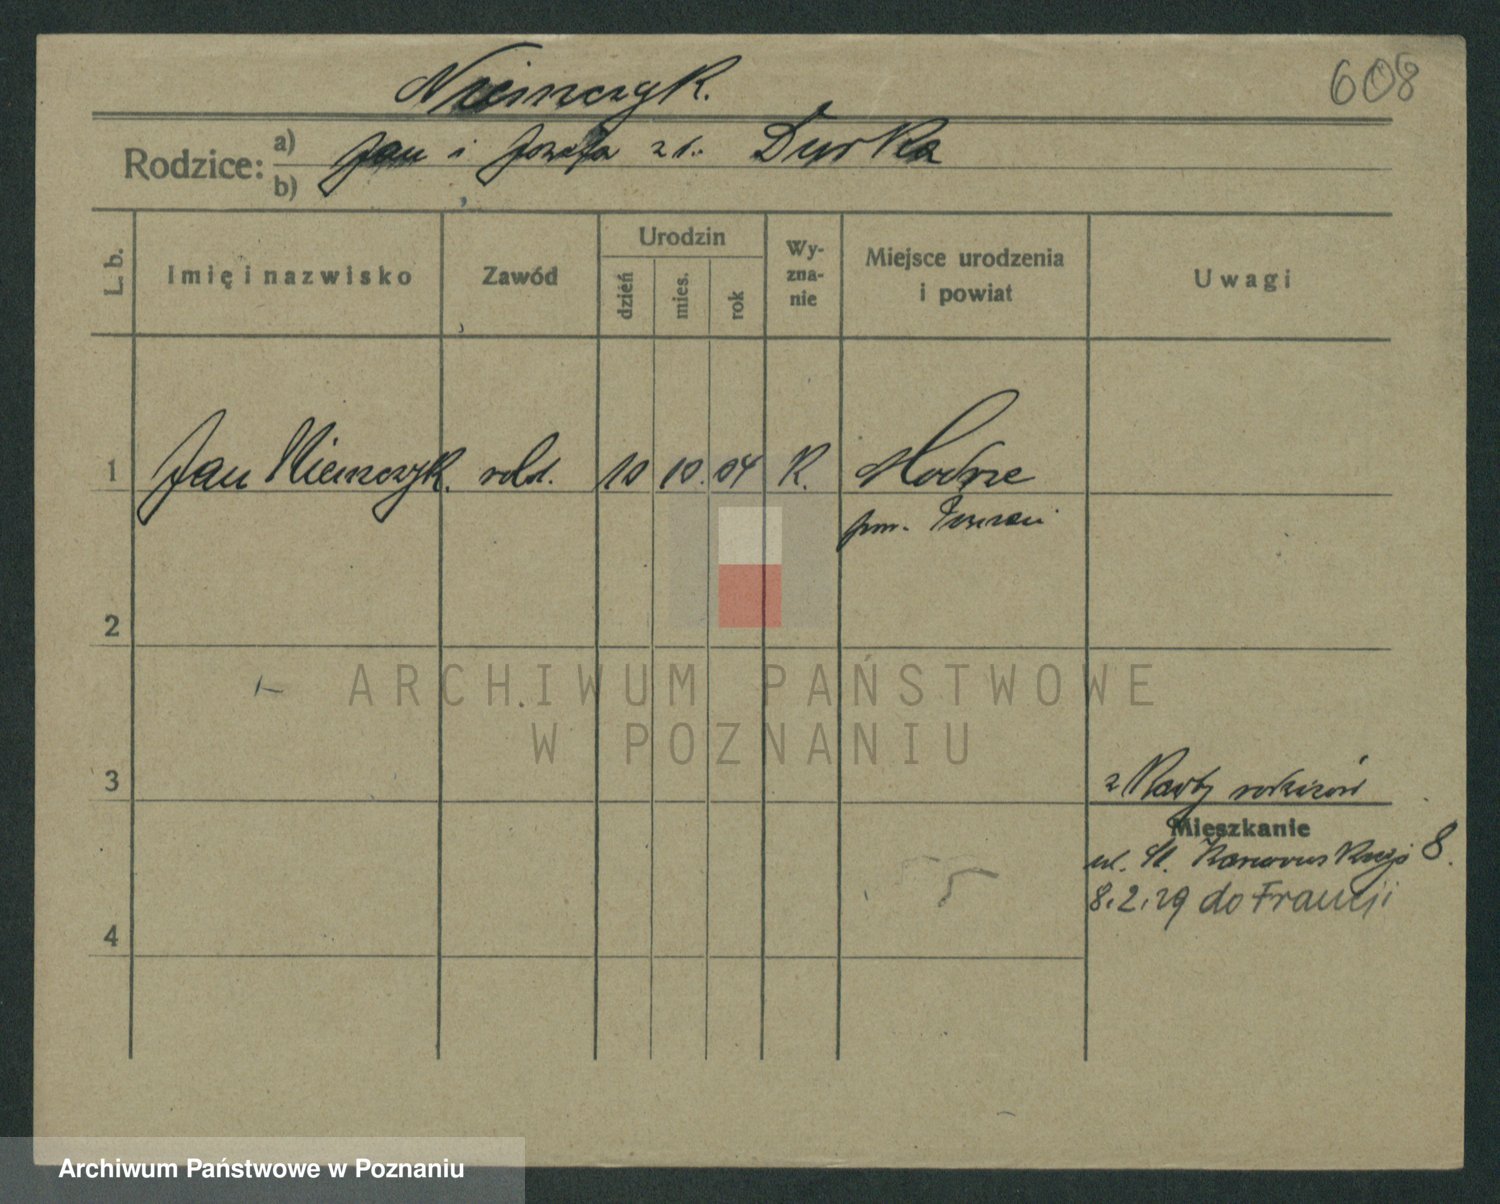 Niemczyk.
608
Rodzice:
a) Jan i Józefa z d. Durka
b)
L. b.
Imię i nazwisko
Zawód
Urodzin
dzień
mies.
rok
Wy-
zna-
nie
Miejsce urodzenia
i powiat
Uwagi
1 Jan Niemczyk. robt. 10 10. 04 R. Modrze
pow. Poznań
2
3
z Karty rodziców
Mieszkanie
ul. St. 8.
8.2.29 do Francji
4
ARCHIWUM PAŃSTWOWE
W POZNANIU
Archiwum Państwowe w Poznaniu